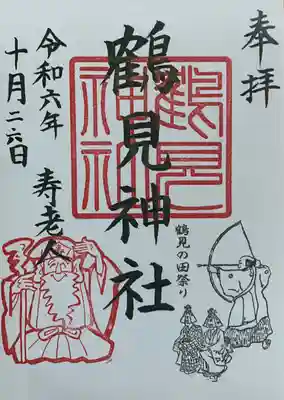 奉拝
鶴見神社
鶴見神社
鶴見の田祭り
寿老人
令和六年
十月二六日